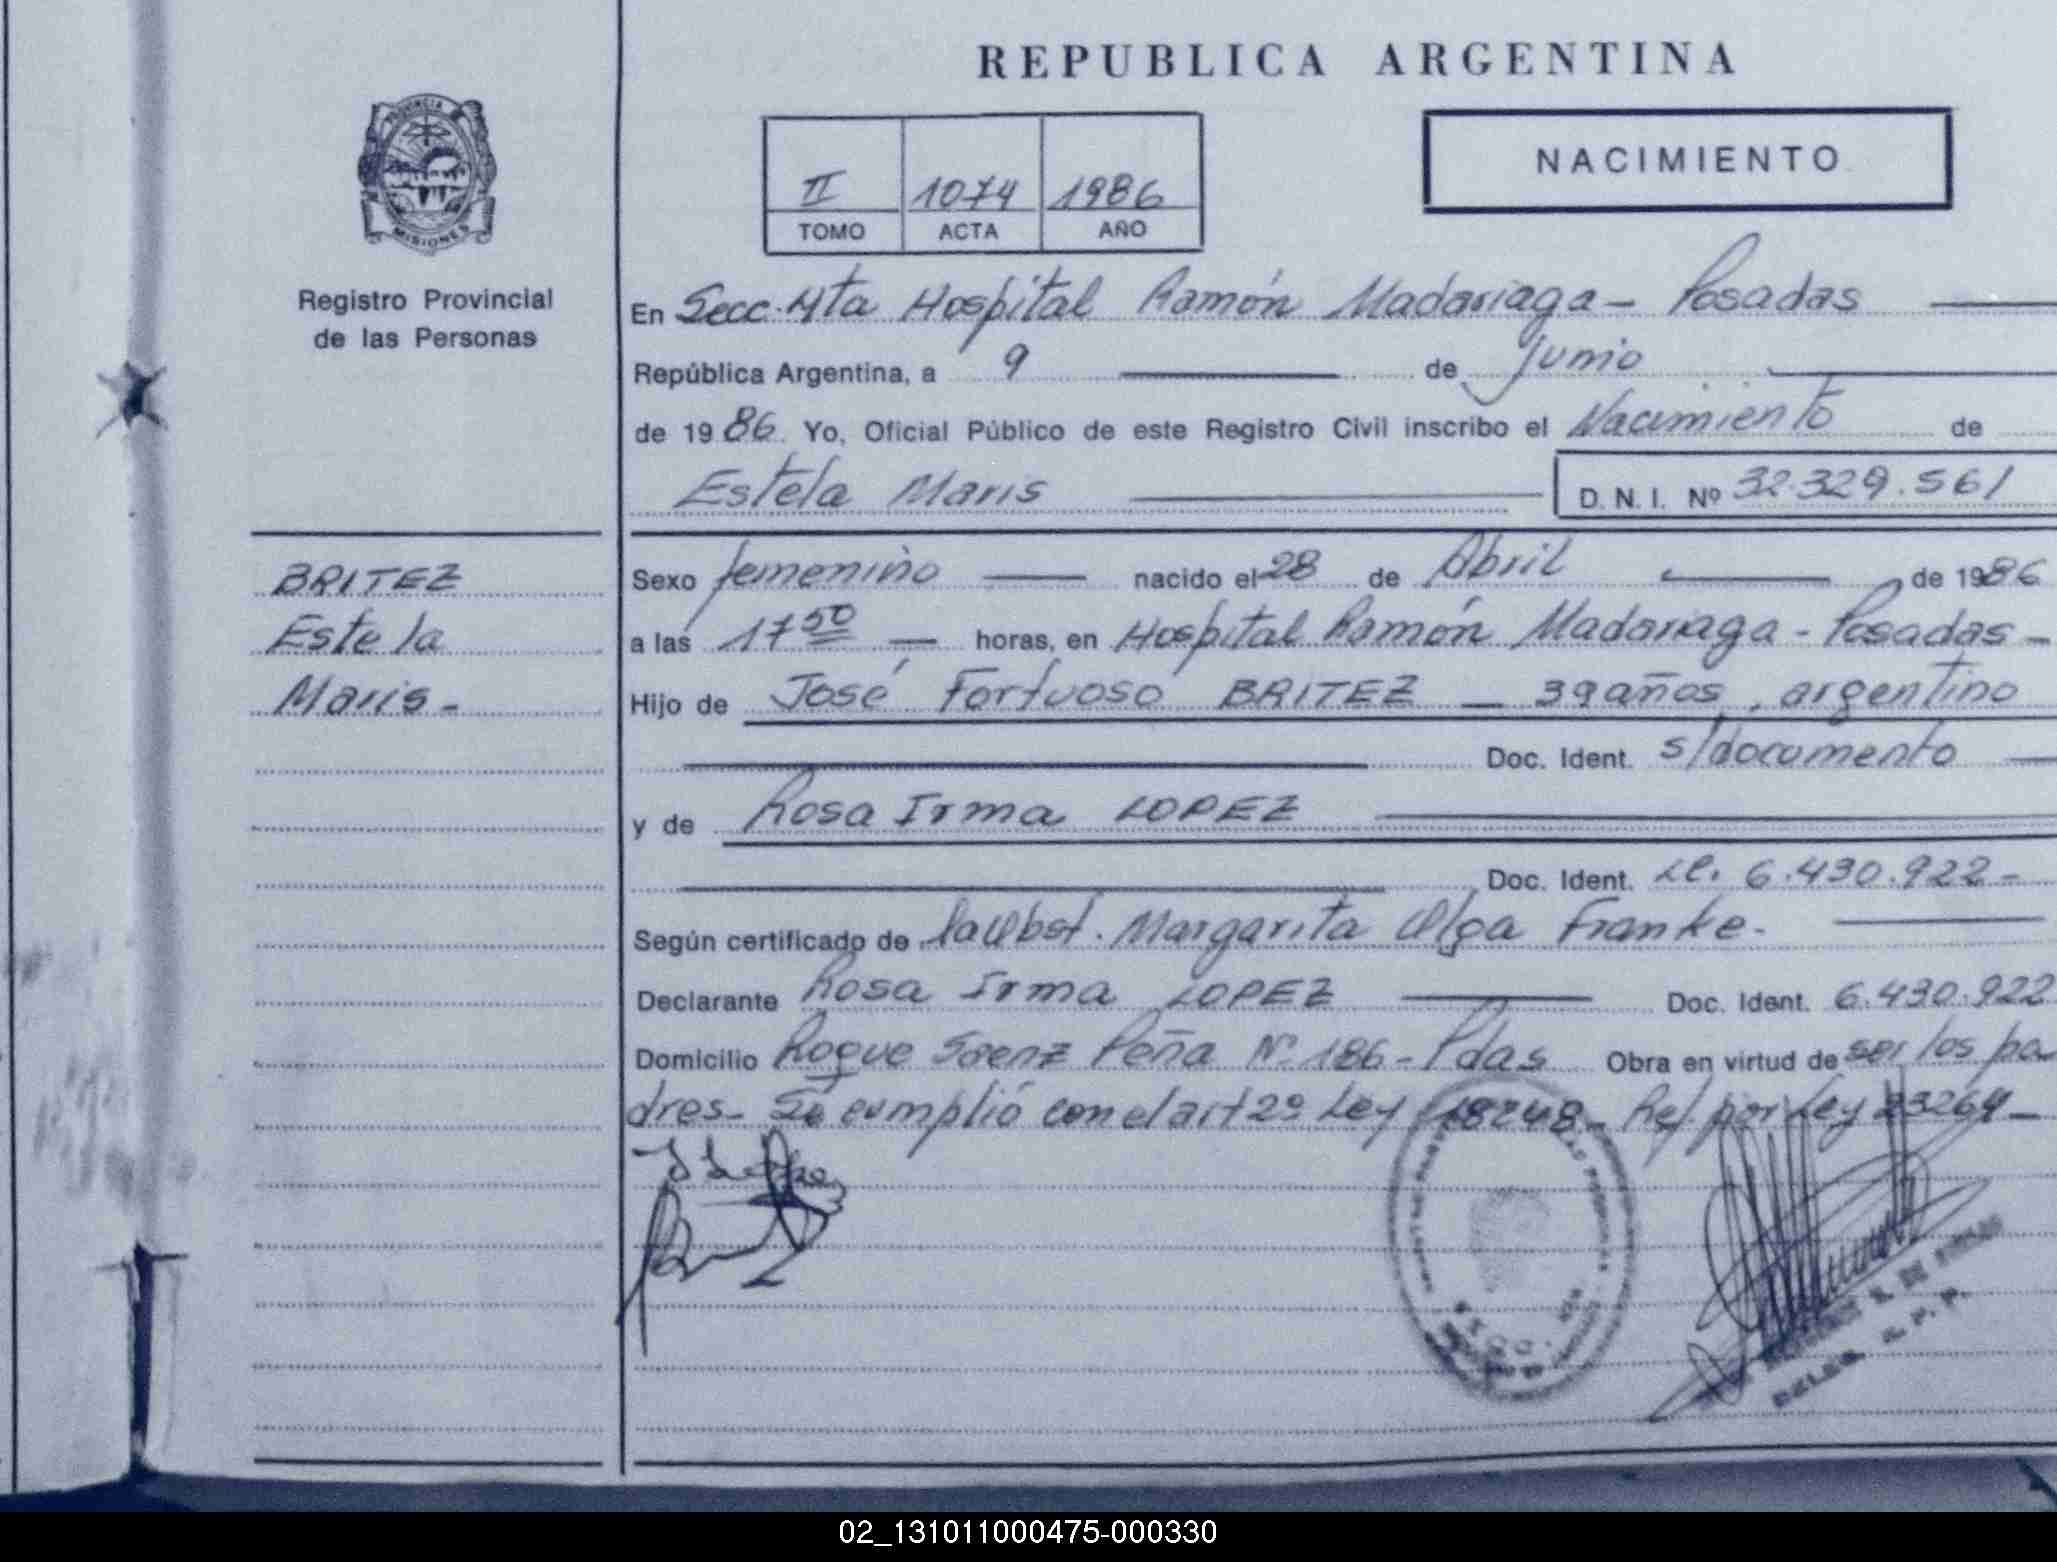 REPUBLICA ARGENTINA
PROVINCIA
MISIONES
Registro Provincial
de las Personas
II 1074 1986
TOMO ACTA AÑO
NACIMIENTO
En Secc. 4ta Hospital Ramón Madariaga - Posadas
República Argentina, a 9 de Junio
de 1986. Yo, Oficial Público de este Registro Civil inscribo el Nacimiento de
Estela Maris
D. N. I. Nº 32.329.561
BRITEZ
Estela
Maris-
Sexo femenino nacido el 28 de Abril de 1986
a las 17 50 horas, en Hospital Ramón Madariaga - Posadas -
Hijo de José Fortuoso BRITEZ - 39 años, argentino
Doc. Ident. s/documento
y de Rosa Irma LOPEZ
Doc. Ident. LC. 6.430.922-
Según certificado de la Obst. Margarita Olga Franke.
Declarante Rosa Irma LOPEZ Doc. Ident. 6.430.922
Domicilio Roque Saenz Peña Nº 186 - Pdas Obra en virtud de ser los pa
dres- Se cumplió con el art 2º Ley 18248- Ref. por Ley 23264-
DELEG. R. P. P.
02_131011000475-000330